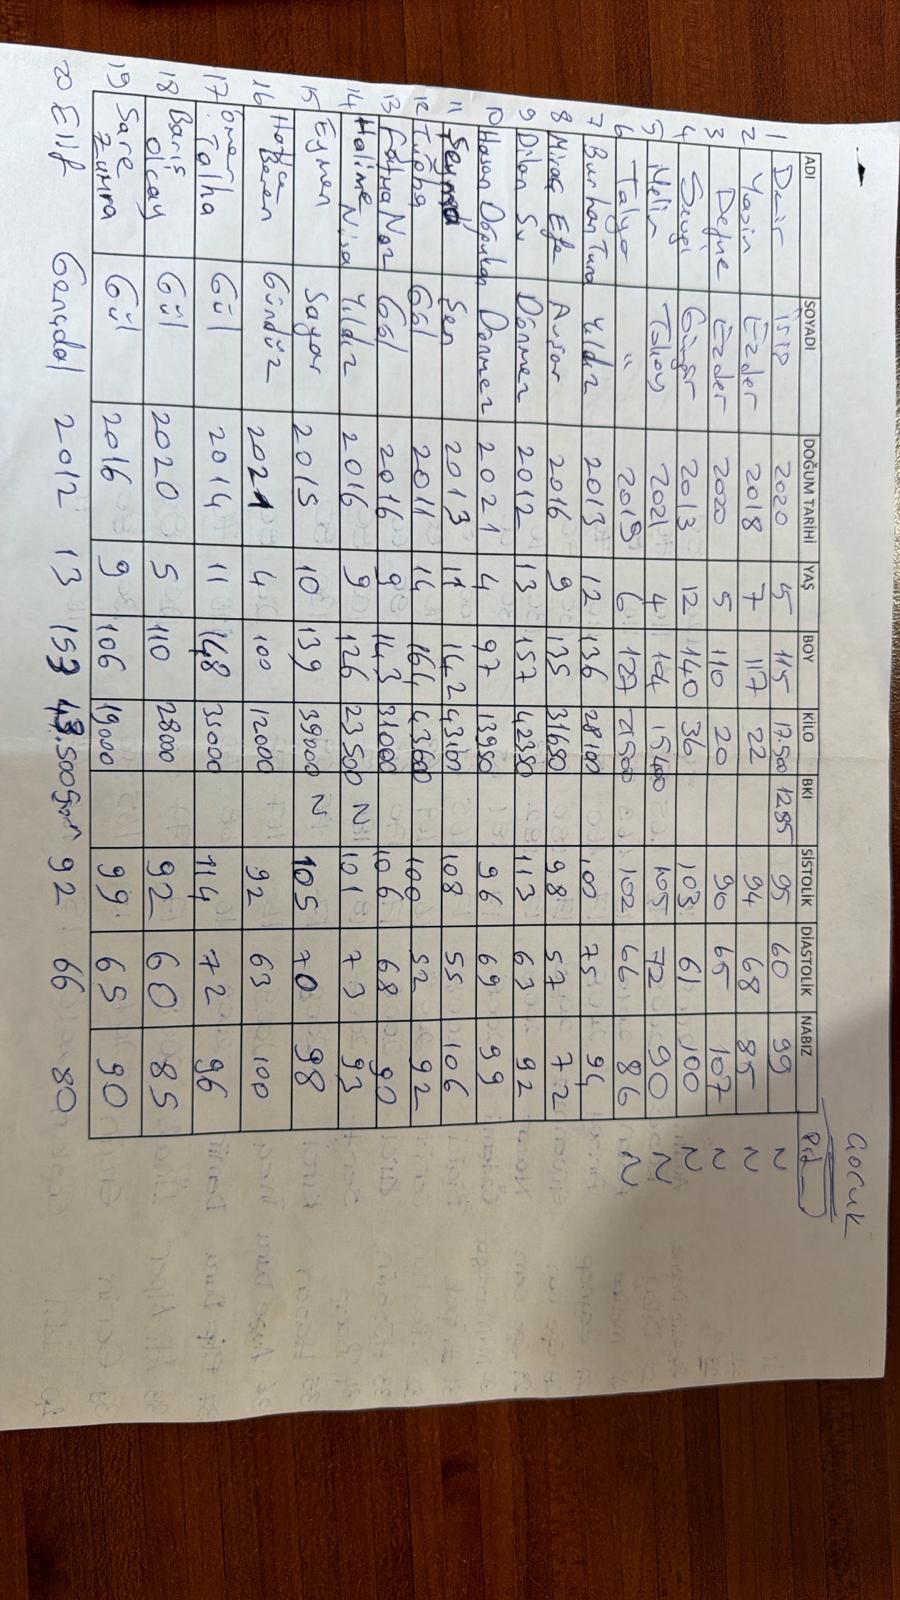 Çocuk
ADI SOYADI DOĞUM TARİHİ YAŞ BOY KİLO BKI SİSTOLİK DİASTOLİK NABIZ
1 2020 5 115 17.500 1295 95 60 99 N
2 Yasin Ezder 2018 7 117 22 94 68 85 N
3 Defne Ezder 2020 5 110 20 90 65 107 N
4 Sevgi Güngör 2013 12 140 36 103 61 100 N
5 Melin 2021 4 104 15400 105 72 90 N
6 Talya " 2019 6 127 21500 102 66 86 N
7 Burhan Tuna Yıldız 2013 12 136 28100 100 75 94
8 Miraç Efe Avşar 2016 9 135 31650 98 57 72
9 Dilan Su Dönmez 2012 13 157 42350 113 63 92
10 Hasan Dönmez 2021 4 97 13950 96 69 99
11 Şeyma Şen 2013 11 142 43100 108 55 106
12 Tuğba Gül 2011 14 164 43600 100 52 92
13 Fatma Nur Gül 2016 9 143 31000 106 68 90
14 Halime Nisa Yıldız 2016 9 126 23500 N 101 73 93
15 Eymen Sayar 2015 10 139 39000 N 105 70 98
16 Hatice Beren Gündüz 2021 4 100 12000 92 63 100
17 Ömer Talha Gül 2014 11 148 35000 114 72 96
18 Barış Olcay Gül 2020 5 110 28000 92 60 85
19 Sare Zümra Gül 2016 9 106 19000 99 65 90
20 Elif Gençdal 2012 13 153 48.500gr 92 66 80